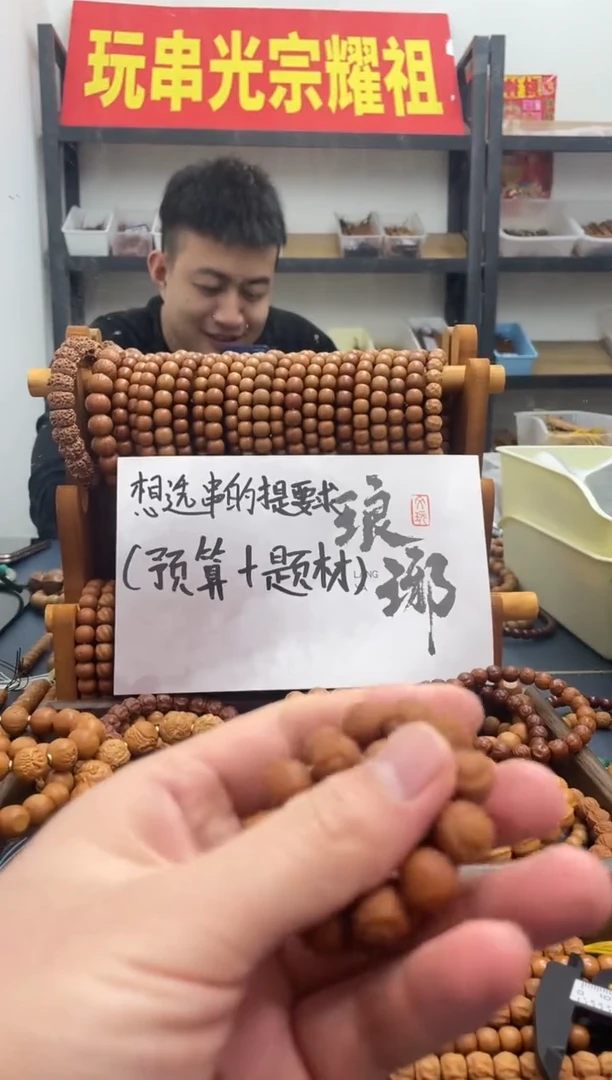 玩串光宗耀祖
想选串的提要求
(预算+题材)
琅琊
LANG